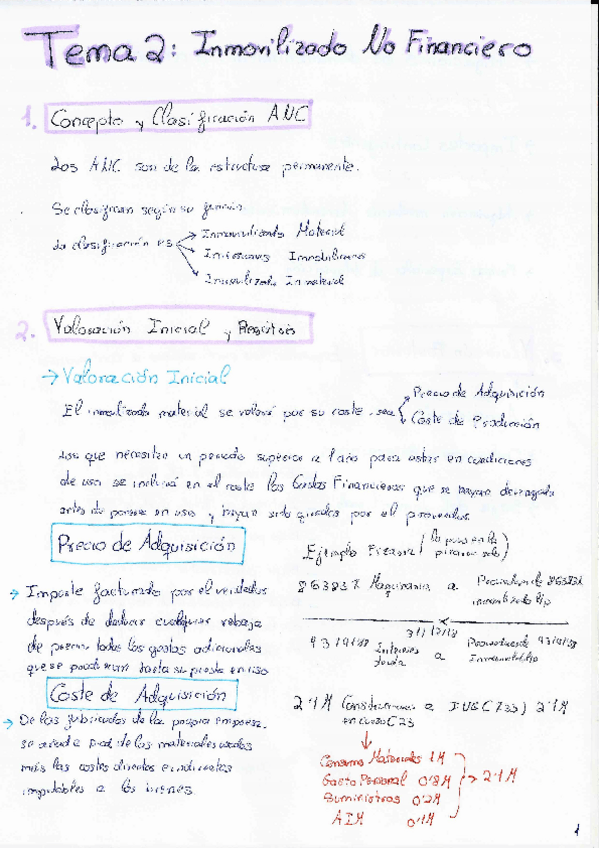 Tema 2: Inmovilizado No Financiero
1. Concepto y Clasificación ANC
Los ANC son de la estructura permanente.
Se clasifican según su función
La clasificación es
→ Inmovilizado Material
→ Inversiones Inmobiliarias
→ Inmovilizado Inmaterial
2. Valoración Inicial y Registro
→ Valoración Inicial
El inmovilizado material se valora por su coste, sea
Precio de Adquisición
Coste de Producción
Los que necesiten un periodo superior a 1 año para estar en condiciones
de uso se incluirá en el coste los Gastos Financieros que se hayan devengado
antes de ponerse en uso y hayan sido girados por el proveedor.
Precio de Adquisición
→ Importe facturado por el vendedor
después de deducir cualquier rebaja
de precio, todos los gastos adicionales
que se produzcan hasta su puesta en uso
Ejemplo Pizarra (lo puso en la pizarra solo)
86383'7 Maquinaria a Proveedores de
inmovilizado l/p
31/12/18
4319'18 Intereses deuda a Proveedores de Inmovilizado 4319'18
Coste de Adquisición
→ De los fabricados de la propia empresa.
se añade a pad de los materiales usados
más los costes directos e indirectos
imputables a los bienes
2'1M Construcciones en curso (23 a IUSC (733) 2'1M
Consumo Materiales 1M
Gasto Personal 0'8M
Suministros 0'2M
AIM 0'1M
2'1M
1